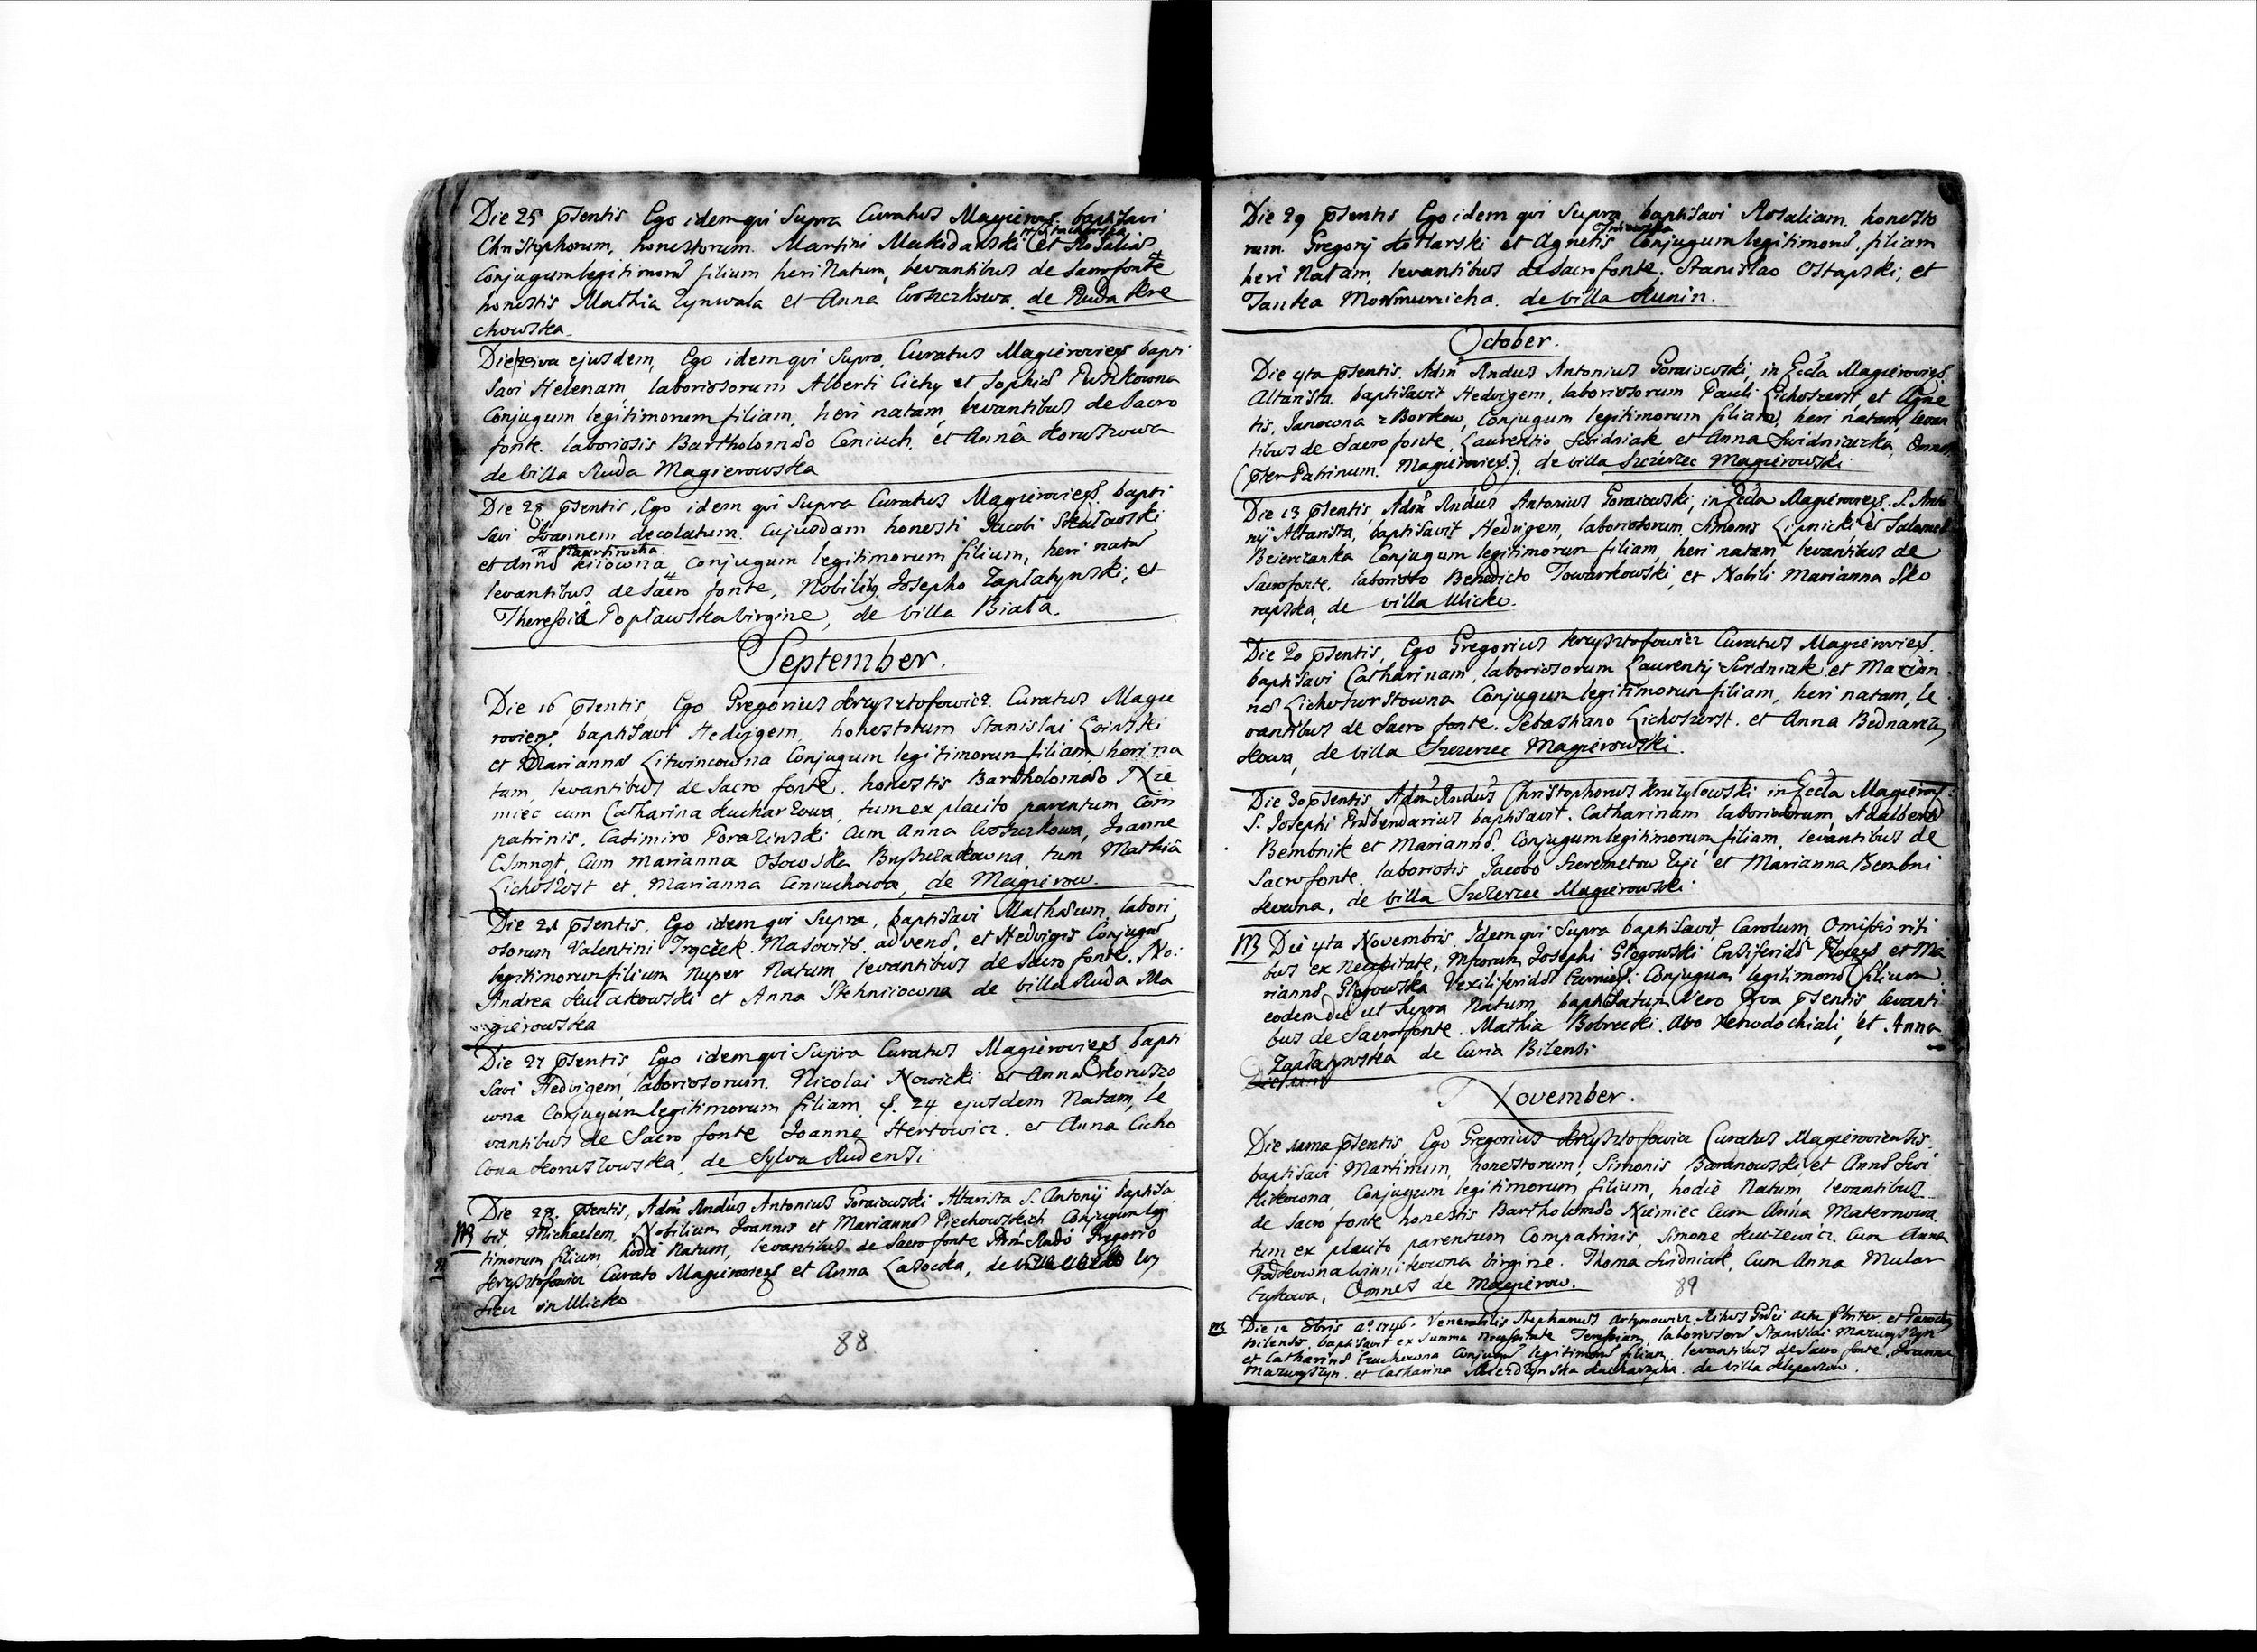 Die 25 pſentis Ego idem qui Supra Curatus Magierovs. baptisavi
Christophorum, honestorum Martini Makidanski et Rosaliæ
Conjugum legitimorũ filium heri Natum, levantibus de Sacro fonte
honestis Mathia Zynwala et Anna Woszczkowa. de Ruda Kre
chowska.
Die ejusdem, Ego idem qui Supra, Curatus Magieroviens bapti
savi Helenam, laboriosorum Alberti Cichy et Sophiæ Puszkowna
Conjugum legitimorum filiam, heri natam, levantibus de Sacro
fonte. laboriosis Bartholomæo Ceniuch. et Annâ Koruszowa
de villa Ruda Magierowska
Die 28 pſentis, Ego idem qui Supra Curatus Magieroviens. bapti
savi Joannem decolatum. Cujusdam honesti Jacobi Skulowski
et Annæ Kiiowna, Conjugum legitimorum filium, heri natũ
levantibus de Sacro fonte, Nobilibq Josepho Zaplatynski, et
Theressiâ Poplawska virgine, de villa Biala.
September.
Die 16 pſentis, Ego Gregorius Krzysztofowicz. Curatus Magie
roviens. baptisavi Hedvigem, honestorum Stanislai
et Mariannæ Litwincowna Conjugum legitimorum filiam, heri na
tam, levantibus de Sacro fonte. honestis Bartholomæo Nie
miec cum Catharina Kucharzowa, tum ex placito parentum Com
patrinis. Casimiro Porazinski cum Anna Woszczkowa, Joanne
Cum Marianna Osowska tum Mathiâ
Lichoszost et Marianna Ceniuchowa, de Magierow.
Die 21 pſentis. Ego idem qui Supra, baptisavi Mathæum, labori
osorum Valentini Trącżek. Masovitæ advenæ. et Hedvigis Conjugũ
legitimorum filium Nuper Natum, levantibus de Sacro fonte. No:
Andrea Kulakowski et Anna Stehniiowna de villa Ruda Ma
gierowska
Die 27 pſentis, Ego idem qui Supra Curatus Magieroviens bapti
savi Hedvigem, laboriosorum. Nicolai Nowicki et Anna Koruszo
wna Conjugum legitimorum filiam. d. 24 ejusdem Natam, le
vantibus de Sacro fonte Joanne Hertowicz. et Anna Cicho
Koruszowska, de Sylva Rudensi
Die 29. pſentis, Adm̃ Rndus Antonius Goraiowski Altarista S. Antonij baptisa
vit Michaelem, Nobilium Joannis et Mariannæ Piechowskich Conjugum legi
timorum filium, hodie Natum, levantibus de Sacro fonte Adm̃ Rndo Gregorio
Krzysztofowicz Curato Magieroviens et Anna Lasocka, de
in Ulicko
88
Die 29 pſentis Ego idem qui Supra baptisavi Rosaliam. honesto
rum. Gregorij Kotlarski et Agnetis Conjugum legitimorũ, filiam
heri Natam, levantibus de Sacro fonte. Stanislao Ostapski, et
Tanka de villa Kunin.
October.
Die 4ta pſentis Adm̃ Rndus Antonius Goraiowski, in Eccla Magieroviens
Altarista baptisavit Hedvigem, laboriosorum Pauli Lichoszerst et Agne
tis, Janowna z Borkow, Conjugum legitimorum filiam, heri natam, levan
tibus de Sacro fonte, Laurentio Swidniak et Anna Swidniaczka, Omnes
(pter Patrinum. Magieroviens.), de villa Szczerzec Magierowski
Die 13 pſentis, Adm̃ Rndus Antonius Goraiowski, in Eccla Magieroviens. S. Anto
nij Altarista, baptisavit Hedvigem, laboriosorum, Simonis Lipnicki et Salomeæ
Beierczanka Conjugum legitimorum filiam, heri natam, levantibus de
Sacro fonte. laborioso Benedicto Towarkowski, et Nobili Marianna Sko
rupska, de villa Ulicko.
Die 20 pſentis, Ego Gregorius Krzysztofowicz Curatus Magieroviens.
baptisavi Catharinam, laboriosorum Laurentij Swidniak et Marian
næ Lichoszorstowna Conjugum legitimorum filiam, heri natam, le
vantibus de Sacro fonte. Sebastiano Lichoszerst. et Anna Bednarcz
kowa, de villa Szczerzec Magierowski.
Die 30 pſentis, Adm̃ Rndus Christophorus Kruzylowski in Eccla Magierov:
S. Josephi Præbendarius baptisavit. Catharinam laboriosorum Adalberti
Bembnik et Mariannæ. Conjugum legitimorum filiam, levantibus de
Sacro fonte. laboriosis Jacobo Szeremetow Zięć et Marianna Bembni
kowna, de villa Szczerzec Magierowski
NB Die 4ta Novembris. Idem qui Supra baptisavit Carolum, Omissis riti
bus ex Necessitate, Josephi Glogowski Ensiferidæ et Ma
riannæ Glogowska Vexiliferidæ Conjugum legitimorũ filium
eodem die ut Supra Natum, baptisatum Vero pſentis levanti
bus de Sacro fonte. Mathia Bobrecki. Xenodochiali, et Anna
Zaplatynska de Curia Bilensi
November.
Die pſentis, Ego Gregorius Krzysztofowicz Curatus Magieroviensis
baptisavi Martinum, honestorum, Simonis Baranowski, et Annæ Swi
Conjugum legitimorum filium, hodiè Natum, levantibus
de Sacro fonte honestis Bartholomæo Niemiec Cum Anna Maternowa
tum ex placito parentum Compatrinis, Simone Cum Anna
virgine. Thoma Swidniak, Cum Anna Mular
czykowa, Omnes de Magierow.
89
NB Die 12 8bris Aº 1746. Venerabilis Stephanus Artymowicz Ritus Græci et Parochq
Bilensis, baptisavit ex Summa Necessitate Teressiam, laboriosorũ Stanislai
et Catharinæ Conjugũ legitimorũ filiam, levantibus de Sacro fonte, Joanne
et Catharina de villa